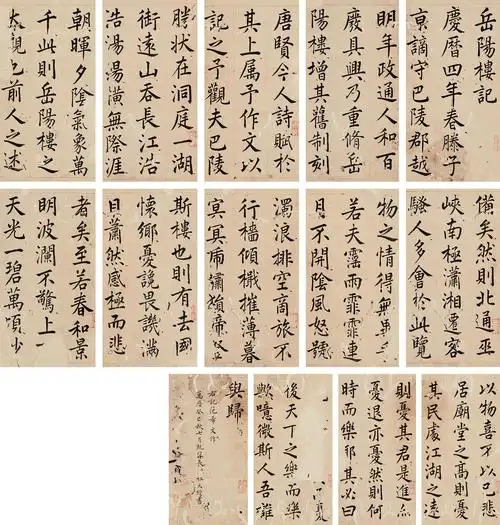 岳陽樓記
慶曆四年春滕子
京謫守巴陵郡越
明年政通人和百
廢具興乃重脩岳
陽樓增其舊制刻
唐賢今人詩賦於
其上属予作文以
記之予觀夫巴陵
勝状在洞庭一湖
銜遠山吞長江浩
浩湯湯橫無際涯
朝暉夕陰氣象萬
千此則岳陽樓之
大觀也前人之述
備矣然則北通巫
峽南極瀟湘遷客
騷人多會於此覽
物之情得無異乎
若夫霪雨霏霏連
月不開陰風怒號
濁浪排空商旅不
行檣傾檝摧薄暮
冥冥虎嘯猿啼
斯樓也則有去國
懷鄉憂讒畏譏滿
目蕭然感極而悲
者矣至若春和景
明波瀾不驚上
天光一碧萬頃沙
以物喜不以己悲
居廟堂之高則憂
其民處江湖之遠
則憂其君是進亦
憂退亦憂然則何
時而樂耶其必曰
憂
後天下之樂而樂
歟噫微斯人吾誰
與歸
右記范希文作